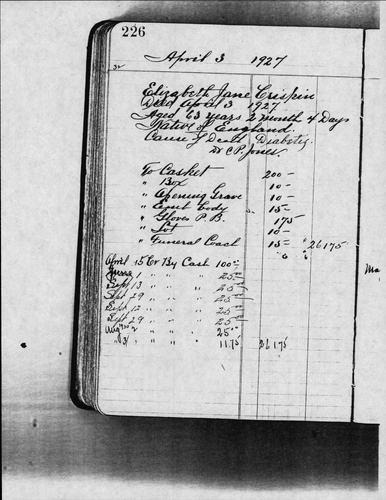 226
April 3 1927
32
Elizabeth Jane Crispin
Died April 3 1927
Aged 63 years 2 month 4 Days
Native of England.
Cause of Death Diabetis.
Dr C.P. Jones.
To Casket 200 –
" Box 10 –
" Opening Grave 10 –
" Emb Body 15 –
" Gloves P.B. 1 75
" Lot 10 –
" Funeral Coach 15 – " 261 75
April 15 Cr By Cash 100 00
June 1 " " " 25 00
Sept 13 " " " 25
Sept 29 " " " 25
Sept 12 " " " 25
Sept 29 " " " 25
Aug 2 " " " 25 00
" 31 " " " 11.75 261 75
Ma